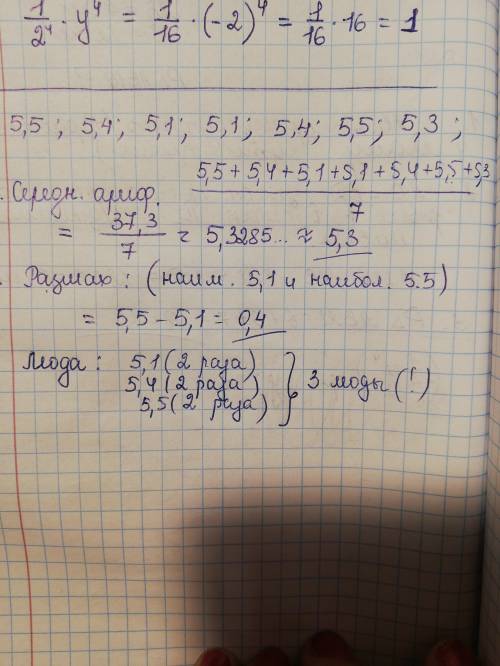 1/2⁴ · y⁴ = 1/16 · (-2)⁴ = 1/16 · 16 = 1
5,5 ; 5,4; 5,1; 5,1; 5,4; 5,5; 5,3 ;
Середн. ариф. (5,5 + 5,4 + 5,1 + 5,1 + 5,4 + 5,5 + 5,3)/7
= 37,3/7 = 5,3285... ≈ 5,3
Размах : (наим. 5,1 и наибол. 5.5)
= 5,5 – 5,1 = 0,4
Мода : 5,1 (2 раза)
5,4 (2 раза) } 3 моды (!)
5,5 (2 раза)